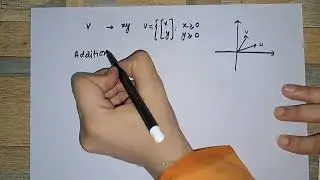 V → xy V = { [x y] : x ≥ 0 y ≥ 0
v
u
Addition